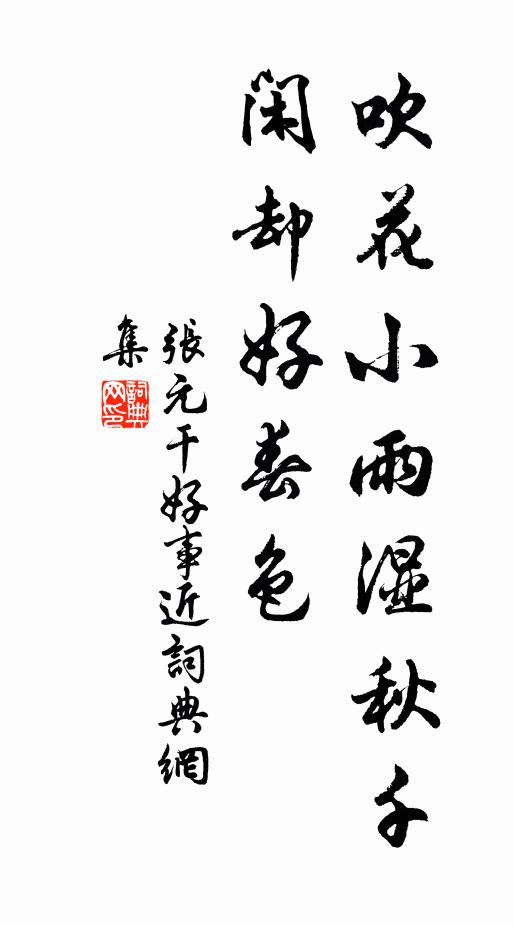 吹花小雨湿秋千
閑却好春色
張元干好事近詞典網
集
詞典
网印